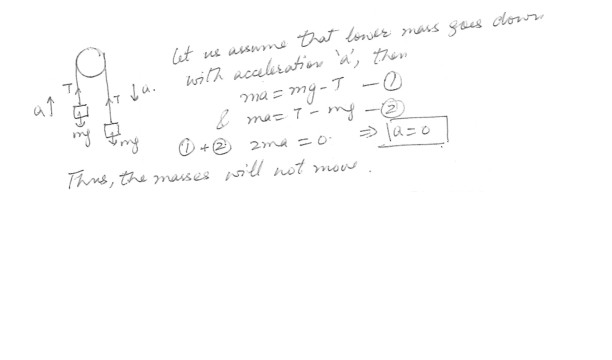 let us assume that lower mass goes down
with acceleration 'a', then
ma = mg - T — ①
& ma = T - mg — ②
① + ② 2ma = 0. ⇒ a = 0
Thus, the masses will not move.
a T T a.
mg mg